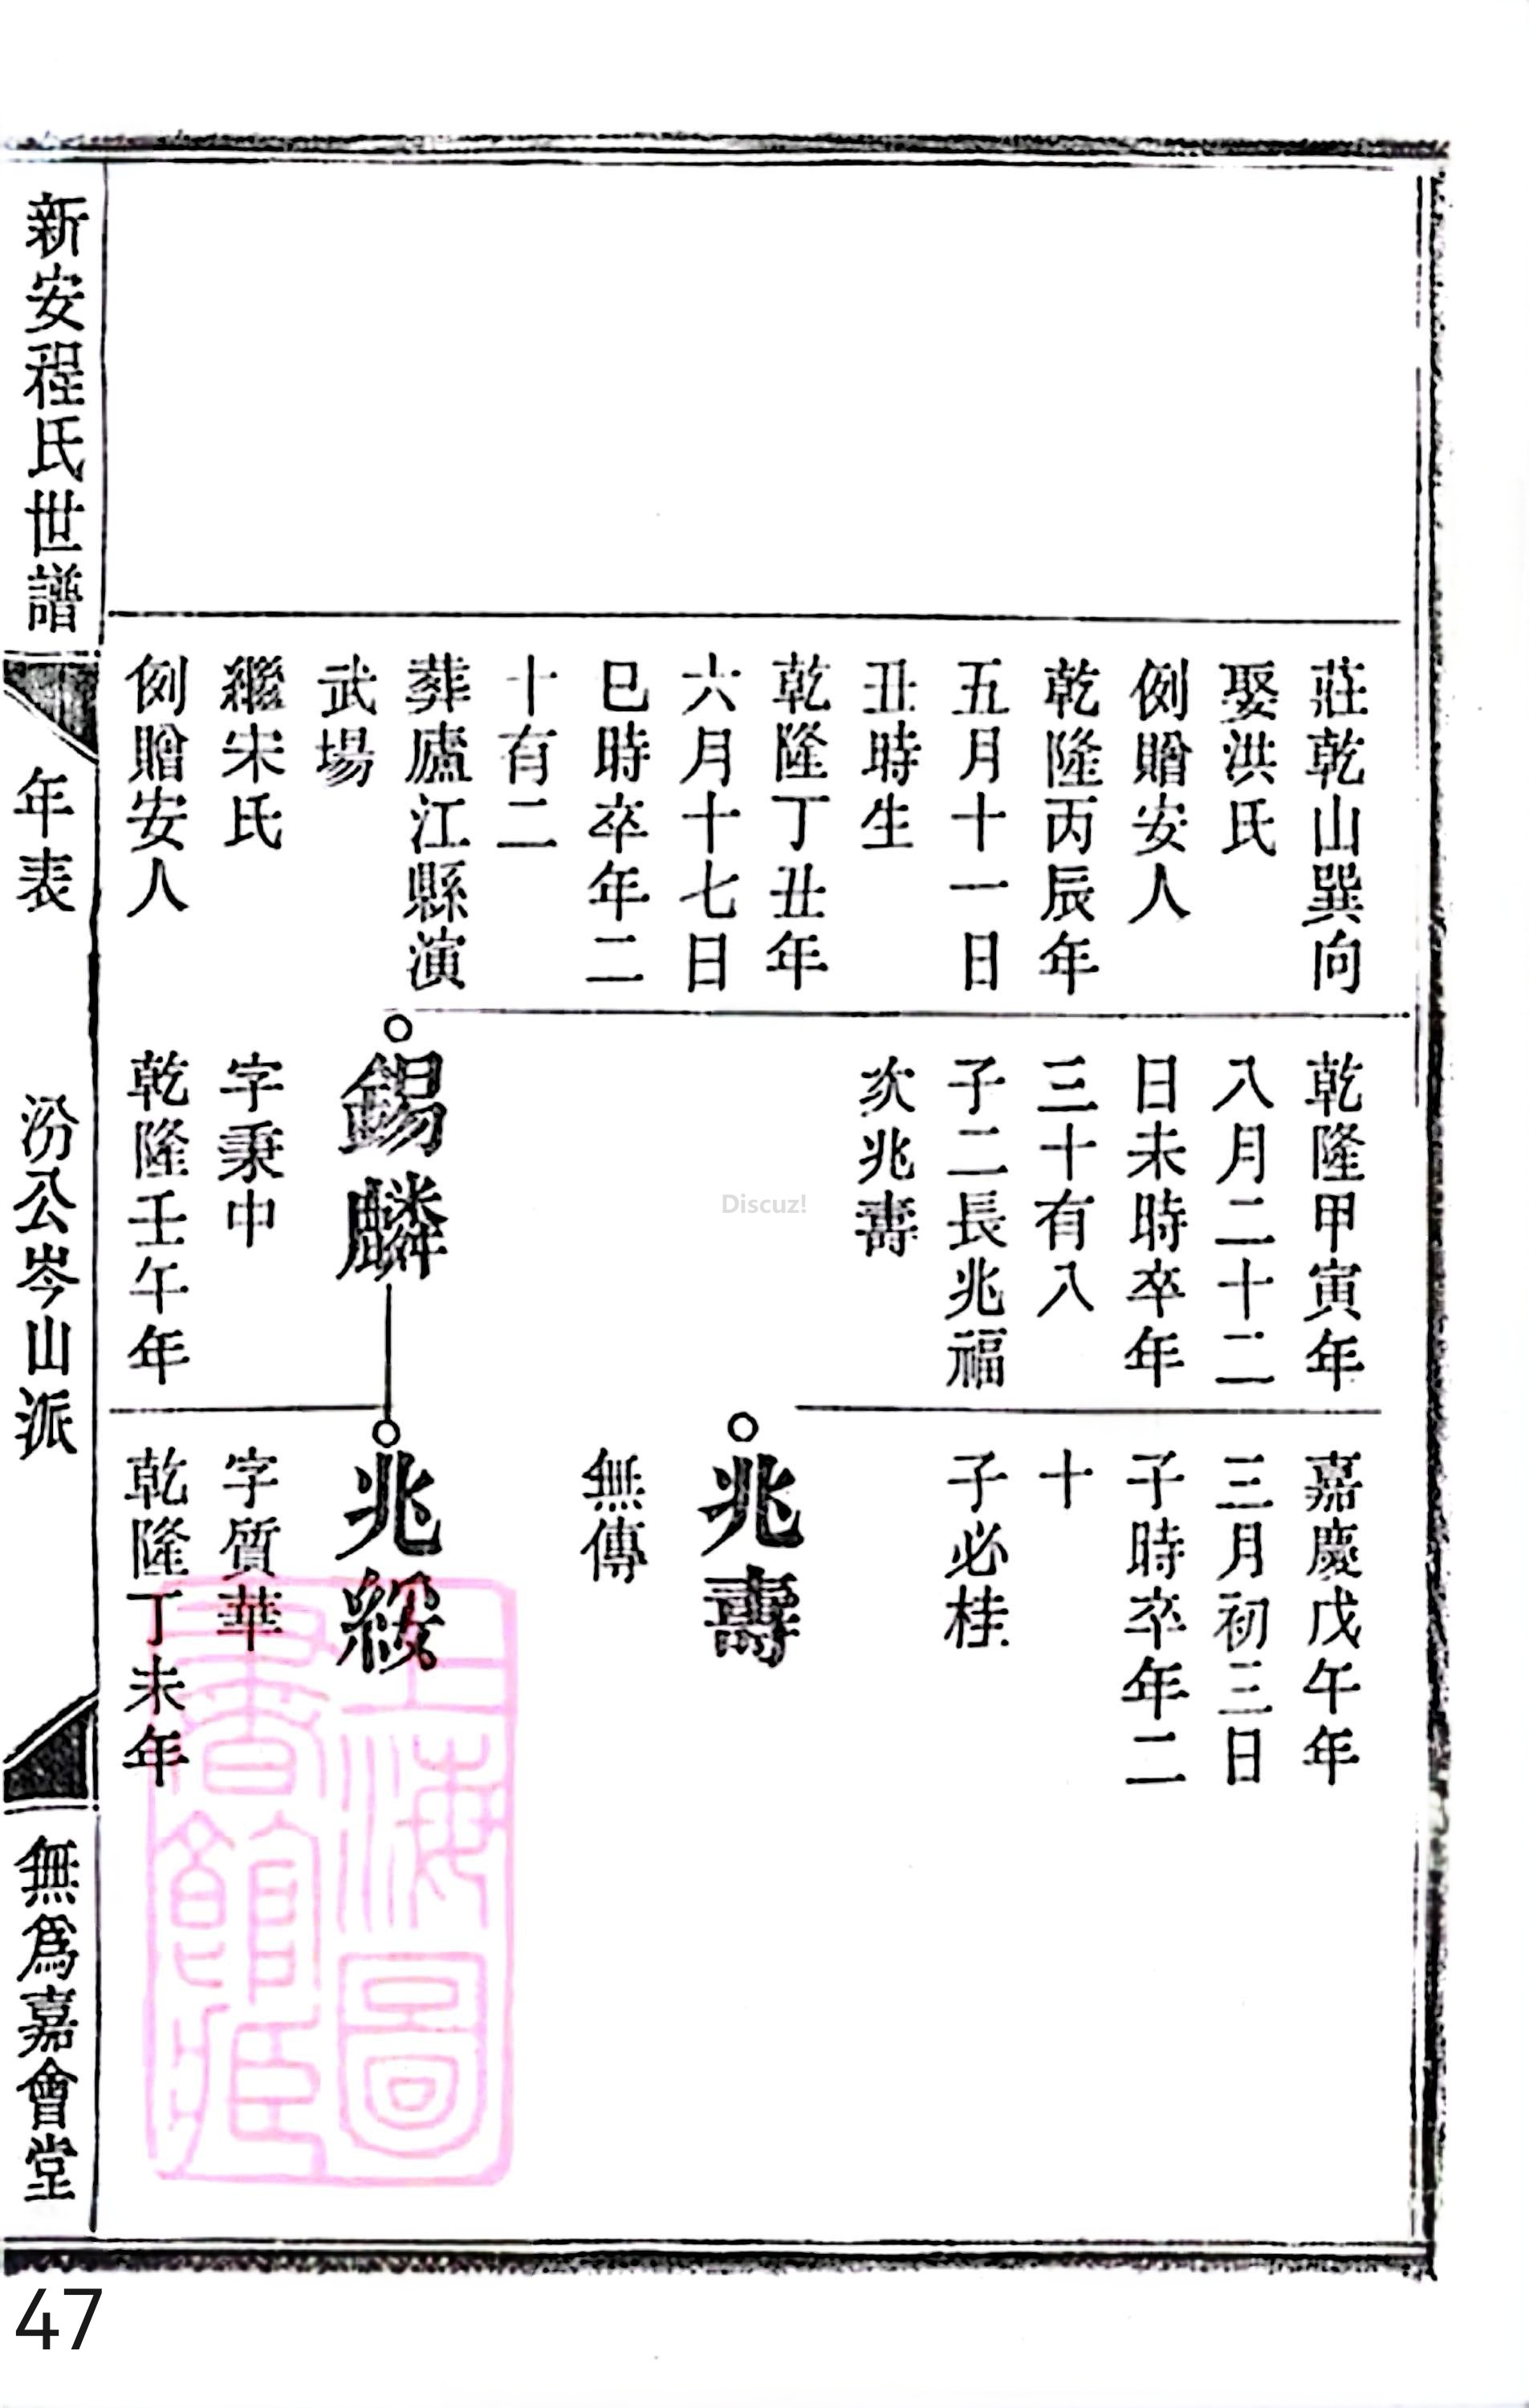 莊乾山巽向
娶洪氏
例贈安人
乾隆丙辰年
五月十一日
丑時生
乾隆丁丑年
六月十七日
巳時卒年二
十有二
葬廬江縣演
武場
繼宋氏
例贈安人
乾隆甲寅年
八月二十二
日未時卒年
三十有八
子二長兆福
次兆壽
錫麟
字秉中
乾隆壬午年
嘉慶戊午年
三月初三日
子時卒年二
十
子必桂
兆壽
無傳
兆綏
字質華
乾隆丁未年
新安程氏世譜
年表
汾公岑山派
無爲嘉會堂
上海圖
書館藏
Discuz!
47